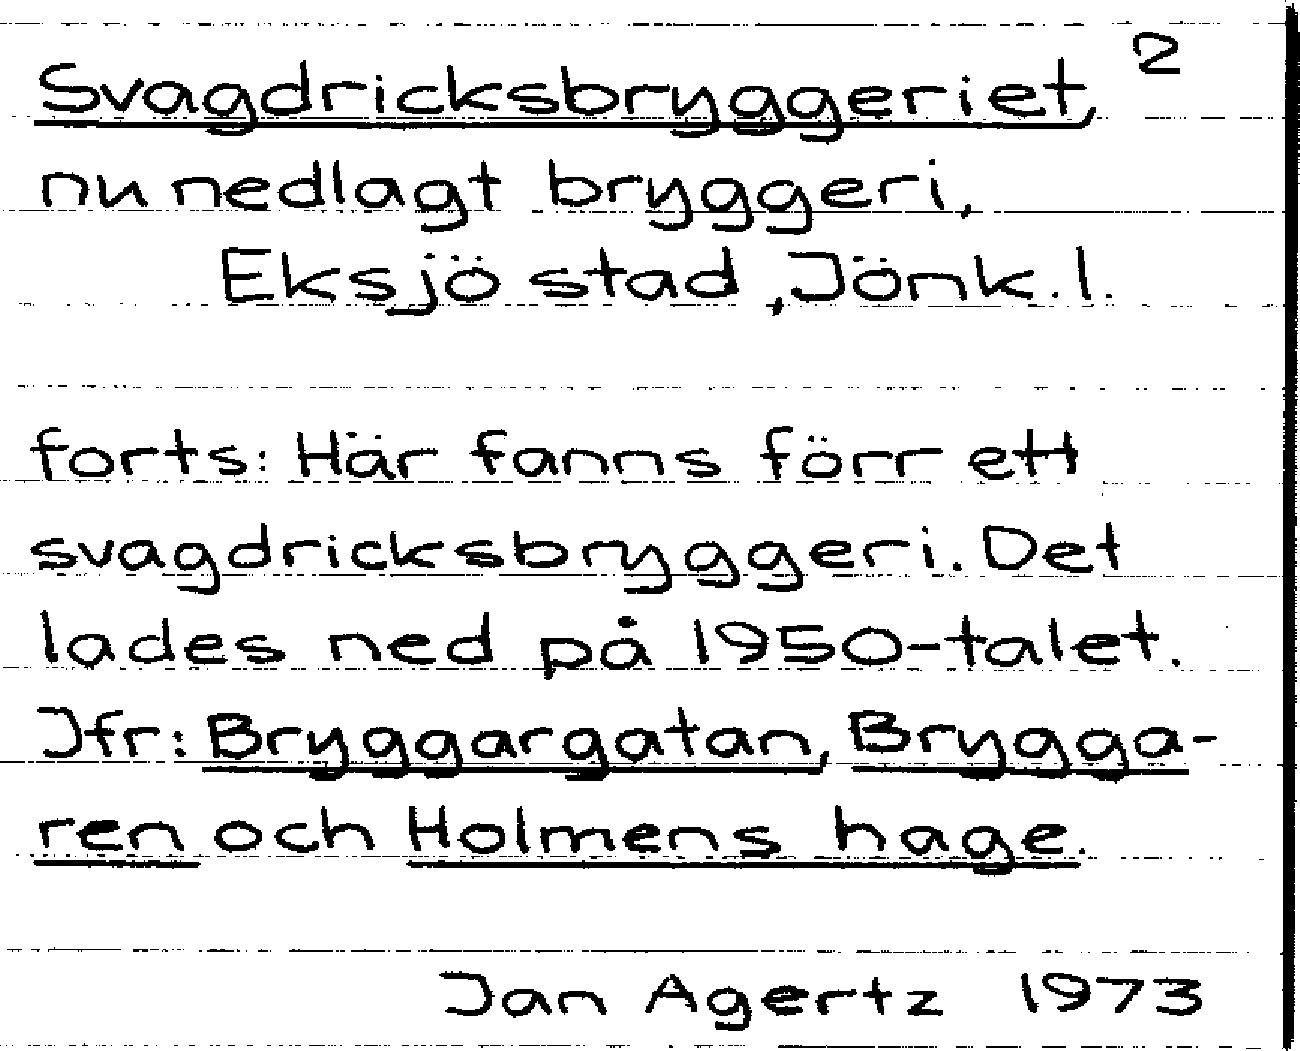 Svagdricksbryggeriet, 2
nu nedlagt bryggeri,
Eksjö stad, Jönk. l.
forts: Här fanns förr ett
svagdricksbryggeri. Det
lades ned på 1950-talet.
Jfr: Bryggargatan, Brygga-
ren och Holmens hage.
Jan Agertz 1973